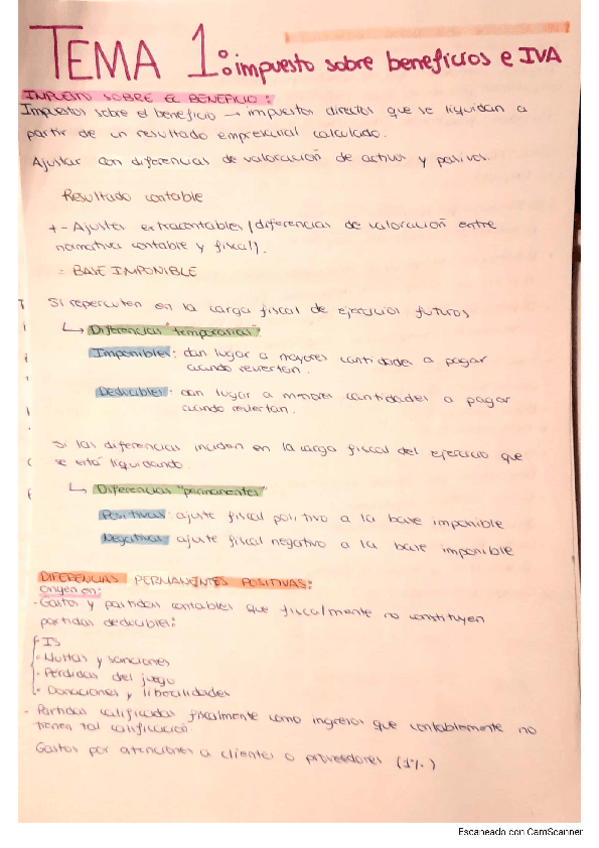 TEMA 1: impuesto sobre beneficios e IVA
IMPUESTO SOBRE EL BENEFICIO:
Impuestos sobre el beneficio → impuestos directos que se liquidan a
partir de un resultado empresarial calculado.
Ajustar con diferencias de valoración de activos y pasivos.
Resultado contable
+ - Ajustes extracontables (diferencias de valoración entre
normativa contable y fiscal).
= BASE IMPONIBLE
Si repercuten en la carga fiscal de ejercicios futuros
↳ Diferencias "temporarias".
Imponibles: dan lugar a mayores cantidades a pagar
cuando reviertan.
Deducibles: dan lugar a menores cantidades a pagar
cuando reviertan.
Si las diferencias inciden en la carga fiscal del ejercicio que
se está liquidando.
↳ Diferencias "permanentes"
Positivas: ajuste fiscal positivo a la base imponible
Negativas: ajuste fiscal negativo a la base imponible
DIFERENCIAS PERMANENTES POSITIVAS:
Origen en:
- Gastos y partidas contables que fiscalmente no constituyen
partidas deducibles:
- IS
- Multas y sanciones
- Pérdidas del juego
- Donaciones y liberalidades
- Partidas calificadas fiscalmente como ingresos que contablemente no
tienen tal calificación.
Gastos por atenciones a clientes o proveedores (1%)
Escaneado con CamScanner